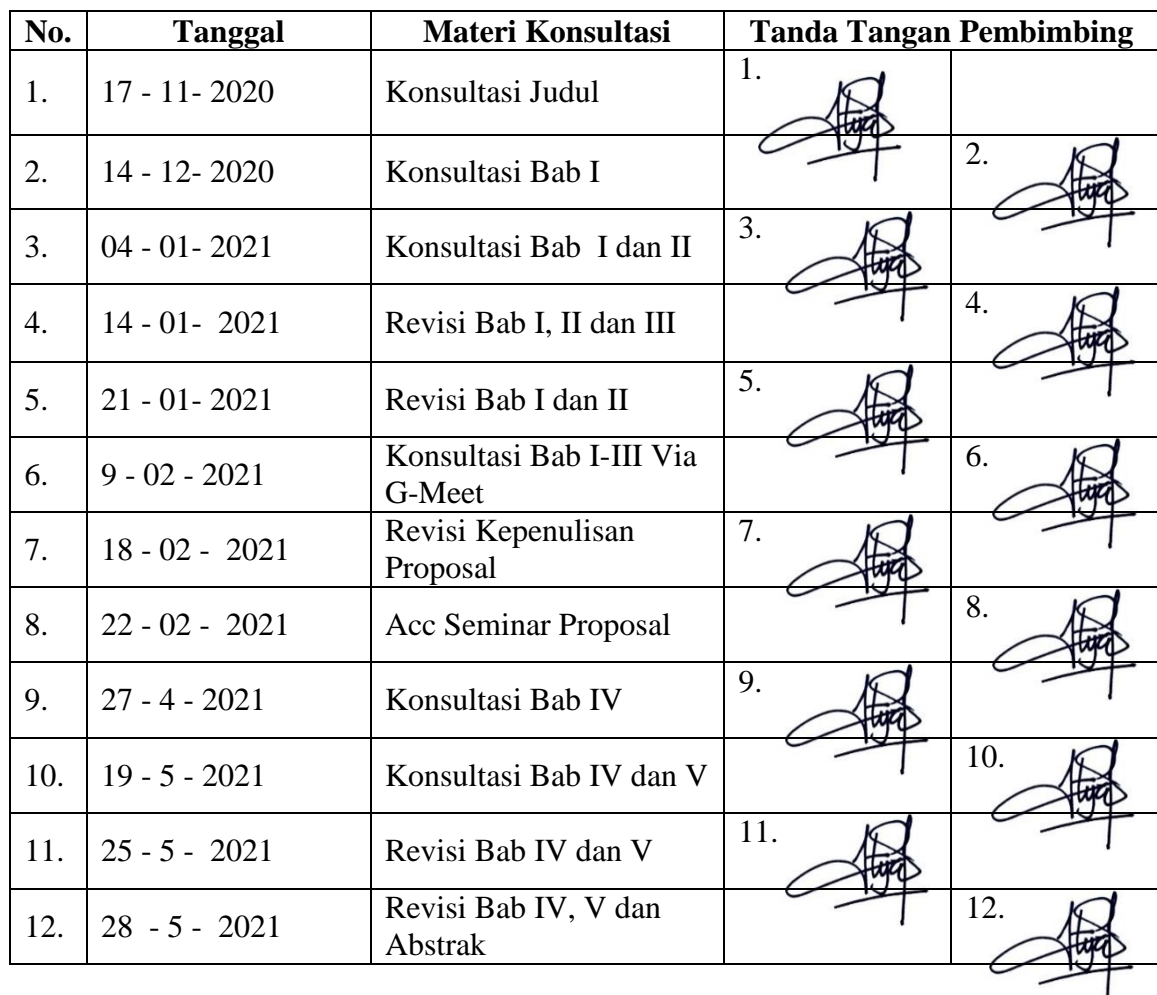 No. Tanggal Materi Konsultasi Tanda Tangan Pembimbing
1. 17 - 11- 2020 Konsultasi Judul 1.
2. 14 - 12- 2020 Konsultasi Bab I 2.
3. 04 - 01- 2021 Konsultasi Bab I dan II 3.
4. 14 - 01- 2021 Revisi Bab I, II dan III 4.
5. 21 - 01- 2021 Revisi Bab I dan II 5.
6. 9 - 02 - 2021 Konsultasi Bab I-III Via 6.
G-Meet
7. 18 - 02 - 2021 Revisi Kepenulisan 7.
Proposal
8. 22 - 02 - 2021 Acc Seminar Proposal 8.
9. 27 - 4 - 2021 Konsultasi Bab IV 9.
10. 19 - 5 - 2021 Konsultasi Bab IV dan V 10.
11. 25 - 5 - 2021 Revisi Bab IV dan V 11.
12. 28 - 5 - 2021 Revisi Bab IV, V dan 12.
Abstrak